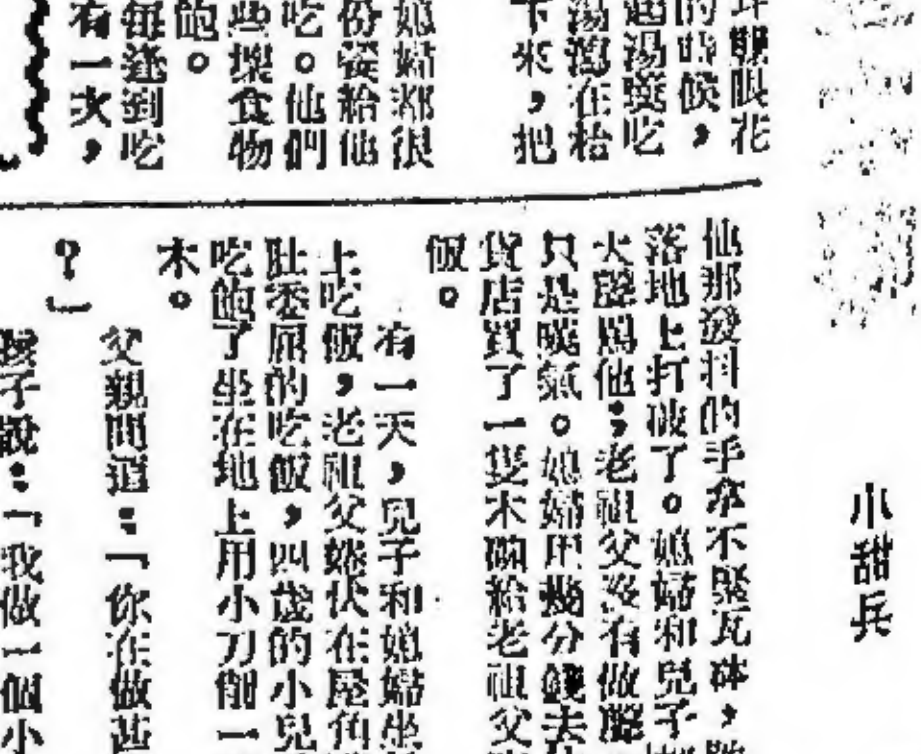 小甜兵
眼花
的時候，
湯燙吃
湯在
下來，把
媳婦都很
份餐給他
吃。他們
些壞食物
飽。
每逢到吃
有一次，
他那發抖的手拿不緊瓦砵，
落地上打破了。媳婦和兒子
火罵他；老祖父沒有做
只是嘆氣。媳婦用幾分錢去
貨店買了一隻木碗給老祖父
飯。
有一天，兒子和媳婦坐
上吃飯，老祖父蜷伏在屋角
肚委屈的吃飯，四歲的小兒
吃飽了坐在地上用小刀削一
木。
父親問道：「你在做甚
？」
孩子說：「我做一個小